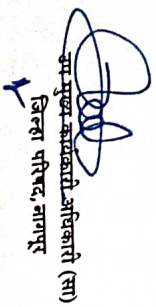 उप मुख्य कार्यकारी अधिकारी (सा)
जिल्हा परिषद, नागपूर